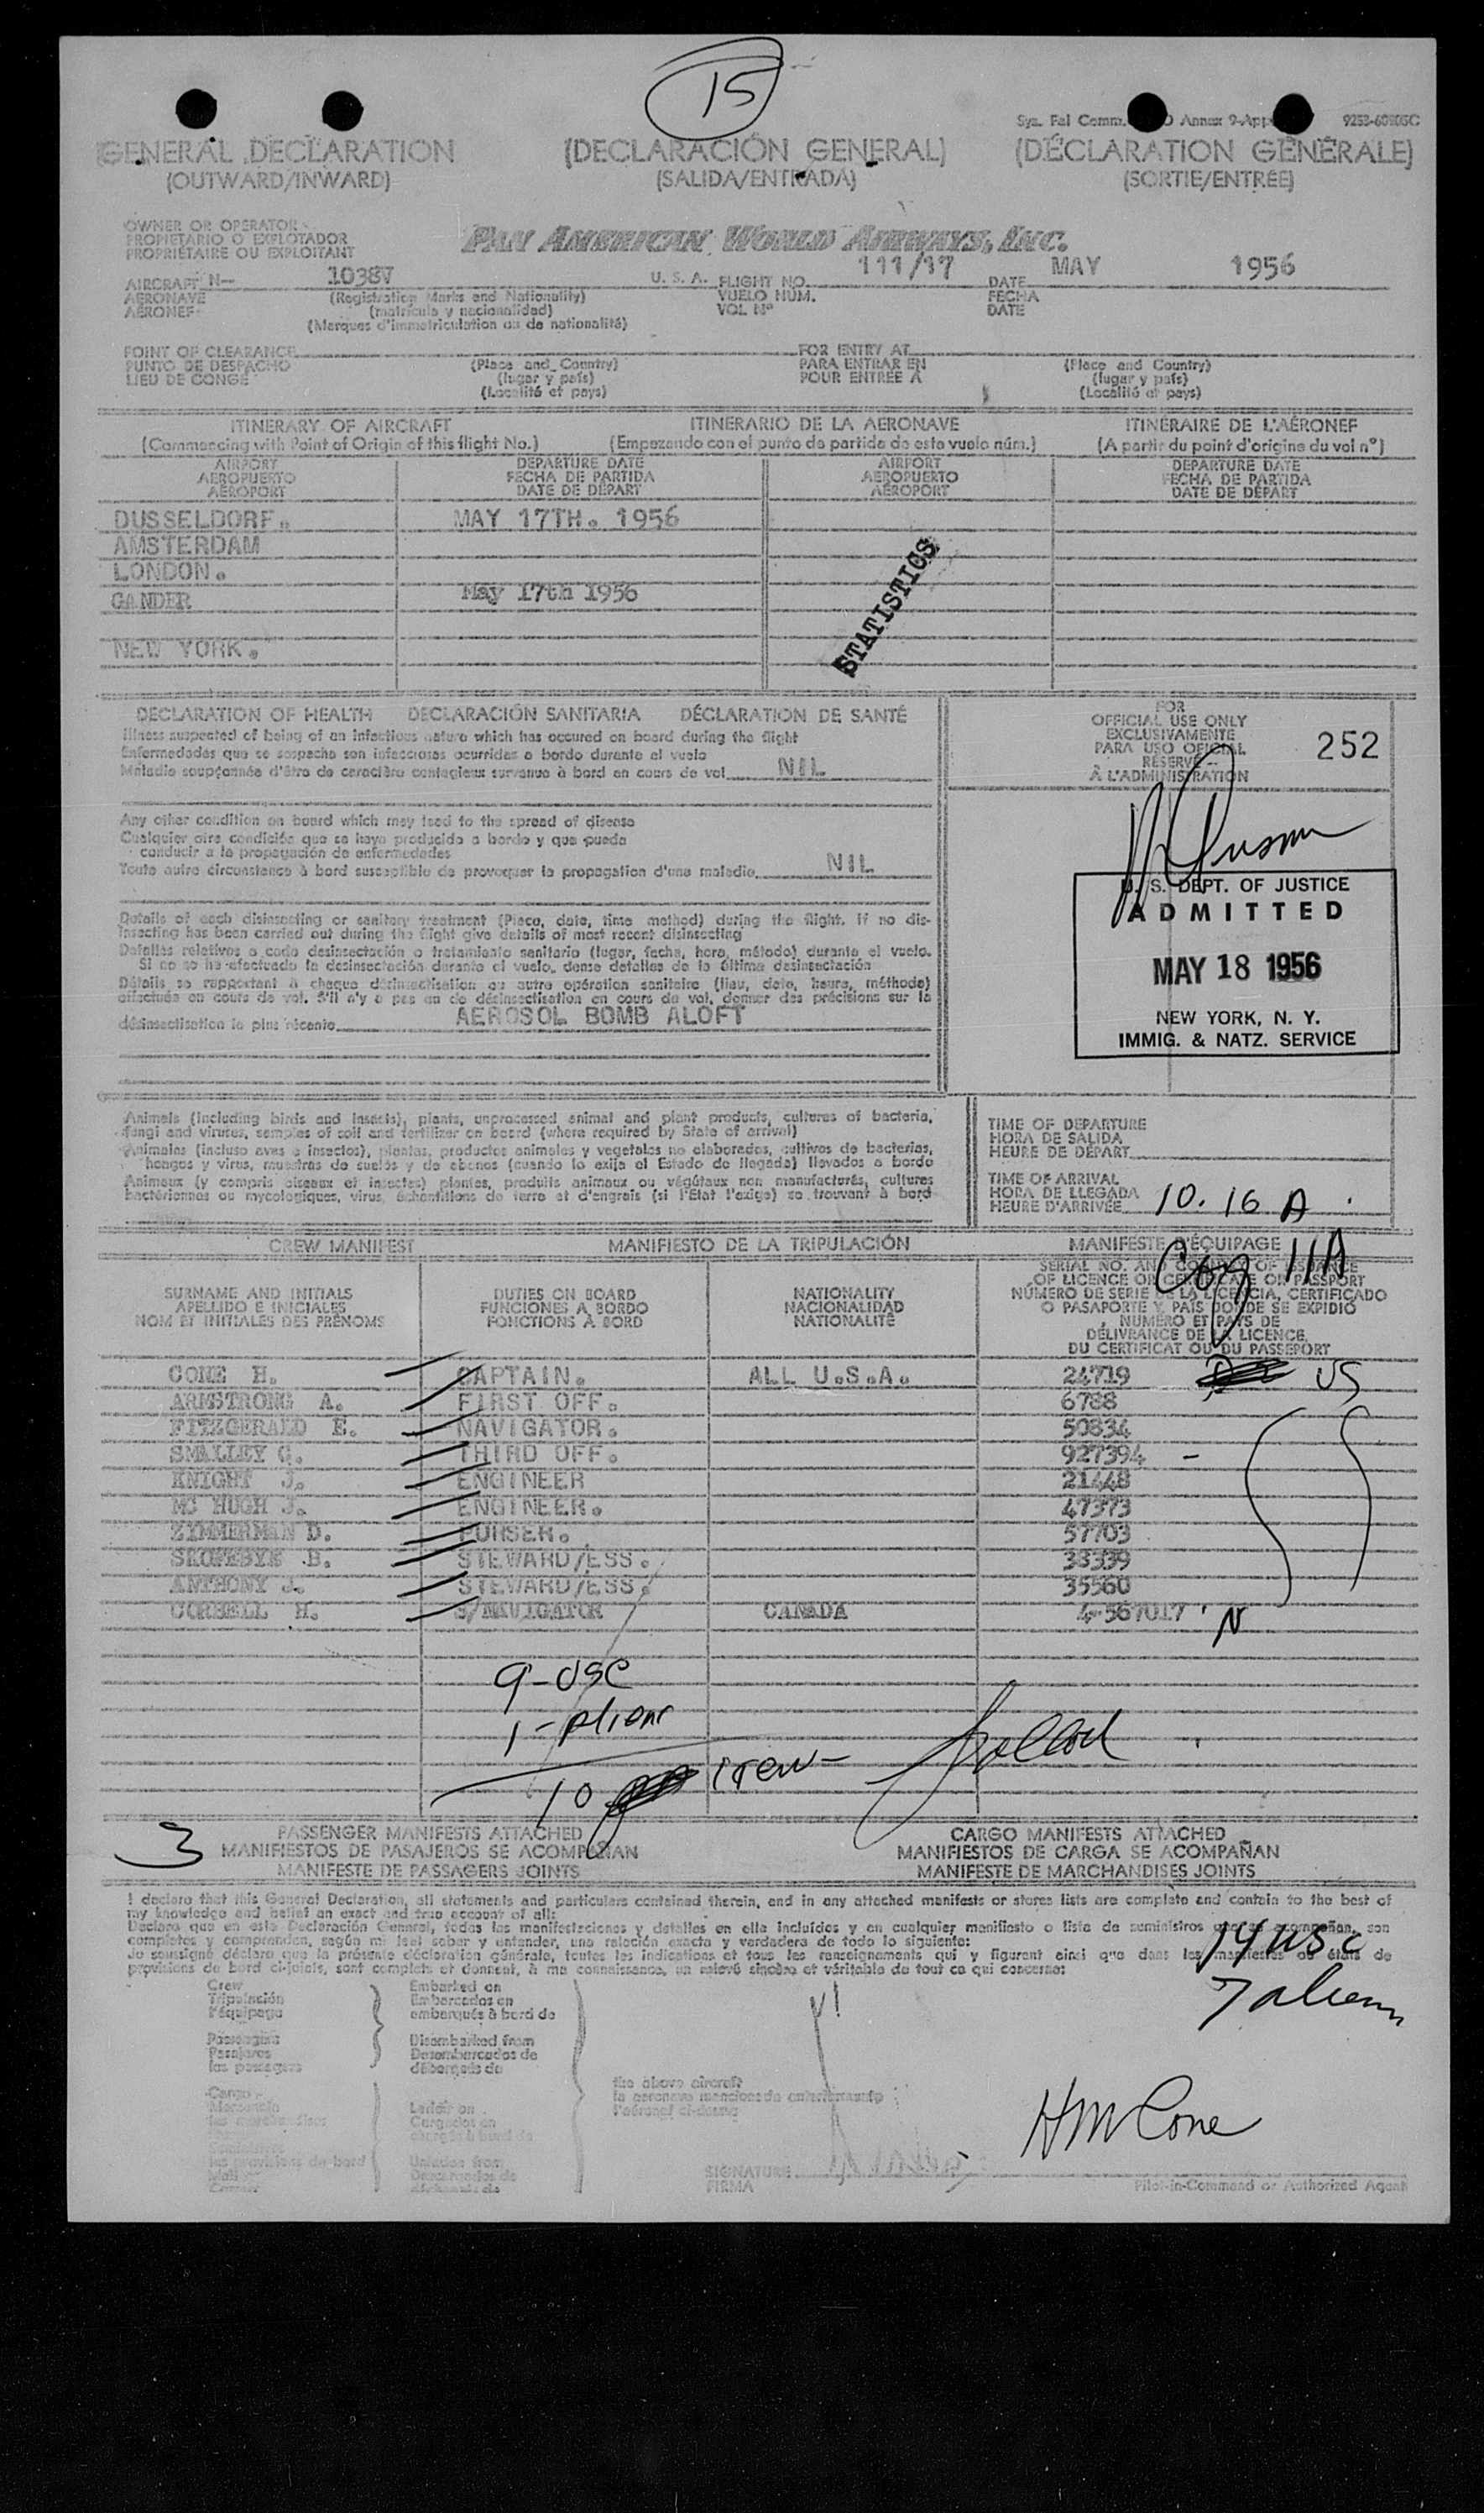 15
Sys. Fal Comm. Annex 9-App 9253-60505C
GENERAL DECLARATION (DECLARACIÓN GENERAL) (DÉCLARATION GÉNÉRALE)
(OUTWARD/INWARD) (SALIDA/ENTRADA) (SORTIE/ENTRÉE)
OWNER OR OPERATOR
PROPIETARIO O EXPLOTADOR
PROPRIÉTAIRE OU EXPLOITANT
PAN AMERICAN WORLD AIRWAYS, INC.
AIRCRAFT N— 1038V U. S. A. FLIGHT NO. 111/17 DATE MAY 1956
AERONAVE (Registration Marks and Nationality) VUELO NÚM. FECHA
AÉRONEF (matrícula y nacionalidad) VOL Nº DATE
(Marques d'immatriculation ou de nationalité)
POINT OF CLEARANCE FOR ENTRY AT
PUNTO DE DESPACHO (Place and Country) PARA ENTRAR EN (Place and Country)
LIEU DE CONGÉ (lugar y país) POUR ENTRÉE À (lugar y país)
(Localité et pays) (Localité et pays)
ITINERARY OF AIRCRAFT ITINERARIO DE LA AERONAVE ITINÉRAIRE DE L'AÉRONEF
(Commencing with Point of Origin of this flight No.) (Empezando con el punto de partida de este vuelo núm.) (A partir du point d'origine du vol nº)
AIRPORT DEPARTURE DATE AIRPORT DEPARTURE DATE
AEROPUERTO FECHA DE PARTIDA AEROPUERTO FECHA DE PARTIDA
AÉROPORT DATE DE DÉPART AÉROPORT DATE DE DÉPART
DUSSELDORF. MAY 17TH. 1956
AMSTERDAM
LONDON.
GANDER May 17th 1956
NEW YORK.
STATISTICS
DECLARATION OF HEALTH DECLARACIÓN SANITARIA DÉCLARATION DE SANTÉ
Illness suspected of being of an infectious nature which has occured on board during the flight
Enfermedades que se sospecha son infecciosas ocurridas a bordo durante el vuelo
Maladie soupçonnée d'être de caractère contagieux survenue à bord en cours de vol NIL
Any other condition on board which may lead to the spread of disease
Cualquier otra condición que se haya producido a bordo y que pueda
conducir a la propagación de enfermedades
Toute autre circonstance à bord susceptible de provoquer la propagation d'une maladie NIL
Details of each disinsecting or sanitary treatment (Place, date, time method) during the flight. If no dis-
insecting has been carried out during the flight give details of most recent disinsecting
Detalles relativos a cada desinsectación o tratamiento sanitario (lugar, fecha, hora, método) durante el vuelo.
Si no se ha efectuado la desinsectación durante el vuelo, dense detalles de la última desinsectación
Détails se rapportant à chaque désinsectisation ou autre opération sanitaire (lieu, date, heure, méthode)
effectuée en cours de vol. S'il n'y a pas eu de désinsectisation en cours de vol, donner des précisions sur la
désinsectisation la plus récente AEROSOL BOMB ALOFT
FOR
OFFICIAL USE ONLY
EXCLUSIVAMENTE
PARA USO OFICIAL
RÉSERVÉ
À L'ADMINISTRATION
252
U. S. DEPT. OF JUSTICE
ADMITTED
MAY 18 1956
NEW YORK, N. Y.
IMMIG. & NATZ. SERVICE
Animals (including birds and insects), plants, unprocessed animal and plant products, cultures of bacteria,
fungi and viruses, samples of soil and fertilizer on board (where required by State of arrival)
Animales (incluso aves e insectos), plantas, productos animales y vegetales no elaborados, cultivos de bacterias,
hongos y virus, muestras de suelos y de abonos (cuando lo exija el Estado de llegada) llevados a bordo
Animaux (y compris oiseaux et insectes) plantes, produits animaux ou végétaux non manufacturés, cultures
bactériennes ou mycologiques, virus, échantillons de terre et d'engrais (si l'État l'exige) se trouvant à bord
TIME OF DEPARTURE
HORA DE SALIDA
HEURE DE DÉPART
TIME OF ARRIVAL
HORA DE LLEGADA
HEURE D'ARRIVÉE 10.16 A
11A
CREW MANIFEST MANIFIESTO DE LA TRIPULACIÓN MANIFESTE D'ÉQUIPAGE
SURNAME AND INITIALS DUTIES ON BOARD NATIONALITY SERIAL NO. AND COUNTRY OF ISSUANCE
APELLIDO E INICIALES FUNCIONES A BORDO NACIONALIDAD OF LICENCE OR CERTIFICATE OR PASSPORT
NOM ET INITIALES DES PRÉNOMS FONCTIONS À BORD NATIONALITÉ NÚMERO DE SERIE DE LA LICENCIA, CERTIFICADO
O PASAPORTE Y PAÍS DONDE SE EXPIDIÓ
NUMÉRO ET PAYS DE
DÉLIVRANCE DE LA LICENCE,
DU CERTIFICAT OU DU PASSEPORT
CONE H. CAPTAIN. ALL U.S.A. 24719 US
ARMSTRONG A. FIRST OFF. 6788
FITZGERALD E. NAVIGATOR. 50834
SMALLEY G. THIRD OFF. 927394 -
KNIGHT J. ENGINEER 21448
MC HUGH J. ENGINEER. 47373
ZIMMERMAN D. PURSER. 57703
SKOFSBYE B. STEWARD/ESS. 38339
ANTHONY J. STEWARD/ESS. 35560
CORBELL H. S/NAVIGATOR CANADA 4-567017 N
9-USC
1-Alien
10 crew-
3
PASSENGER MANIFESTS ATTACHED CARGO MANIFESTS ATTACHED
MANIFIESTOS DE PASAJEROS SE ACOMPAÑAN MANIFIESTOS DE CARGA SE ACOMPAÑAN
MANIFESTE DE PASSAGERS JOINTS MANIFESTE DE MARCHANDISES JOINTS
I declare that this General Declaration, all statements and particulars contained therein, and in any attached manifests or stores lists are complete and contain to the best of
my knowledge and belief an exact and true account of all:
Declaro que en esta Declaración General, todas las manifestaciones y detalles en ella incluídos y en cualquier manifiesto o lista de suministros que se acompañan, son
completos y comprenden, según mi leal saber y entender, una relación exacta y verdadera de todo lo siguiente:
Je soussigné déclare que la présente déclaration générale, toutes les indications et tous les renseignements qui y figurent ainsi que dans les manifestes ou états de
provisions de bord ci-joints, sont complets et donnent, à ma connaissance, un relevé sincère et véritable de tout ce qui concerne:
14 USC
7 aliens
Crew Embarked on
Tripulación Embarcados en
l'équipage embarqués à bord de
Passengers Disembarked from
Pasajeros Desembarcados de
les passagers débarqués de
the above aircraft
la aeronave mencionada anteriormente
l'aéronef ci-dessus
Cargo
les provisions de bord
HM Cone
SIGNATURE
FIRMA
Pilot-in-Command or Authorized Agent